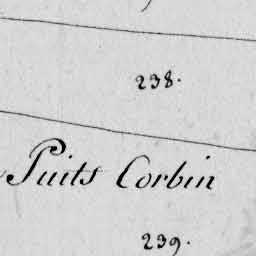 238.
Puits Corbin
239.